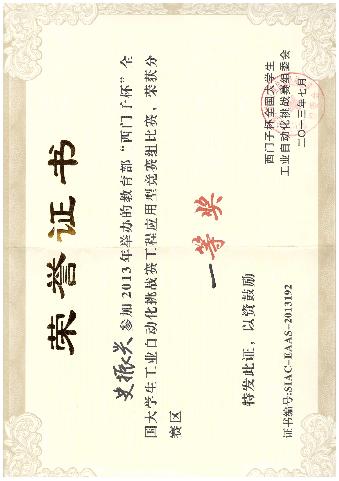 荣誉证书
史振兴 参加2013年举办的教育部“西门子杯”全
国大学生工业自动化挑战赛工程应用型竞赛组比赛,荣获分
赛区
一等奖
特发此证,以资鼓励
西门子杯全国大学生
工业自动化挑战赛组委会
二〇一三年七月
证书编号:SIAC-EAAS-2013192